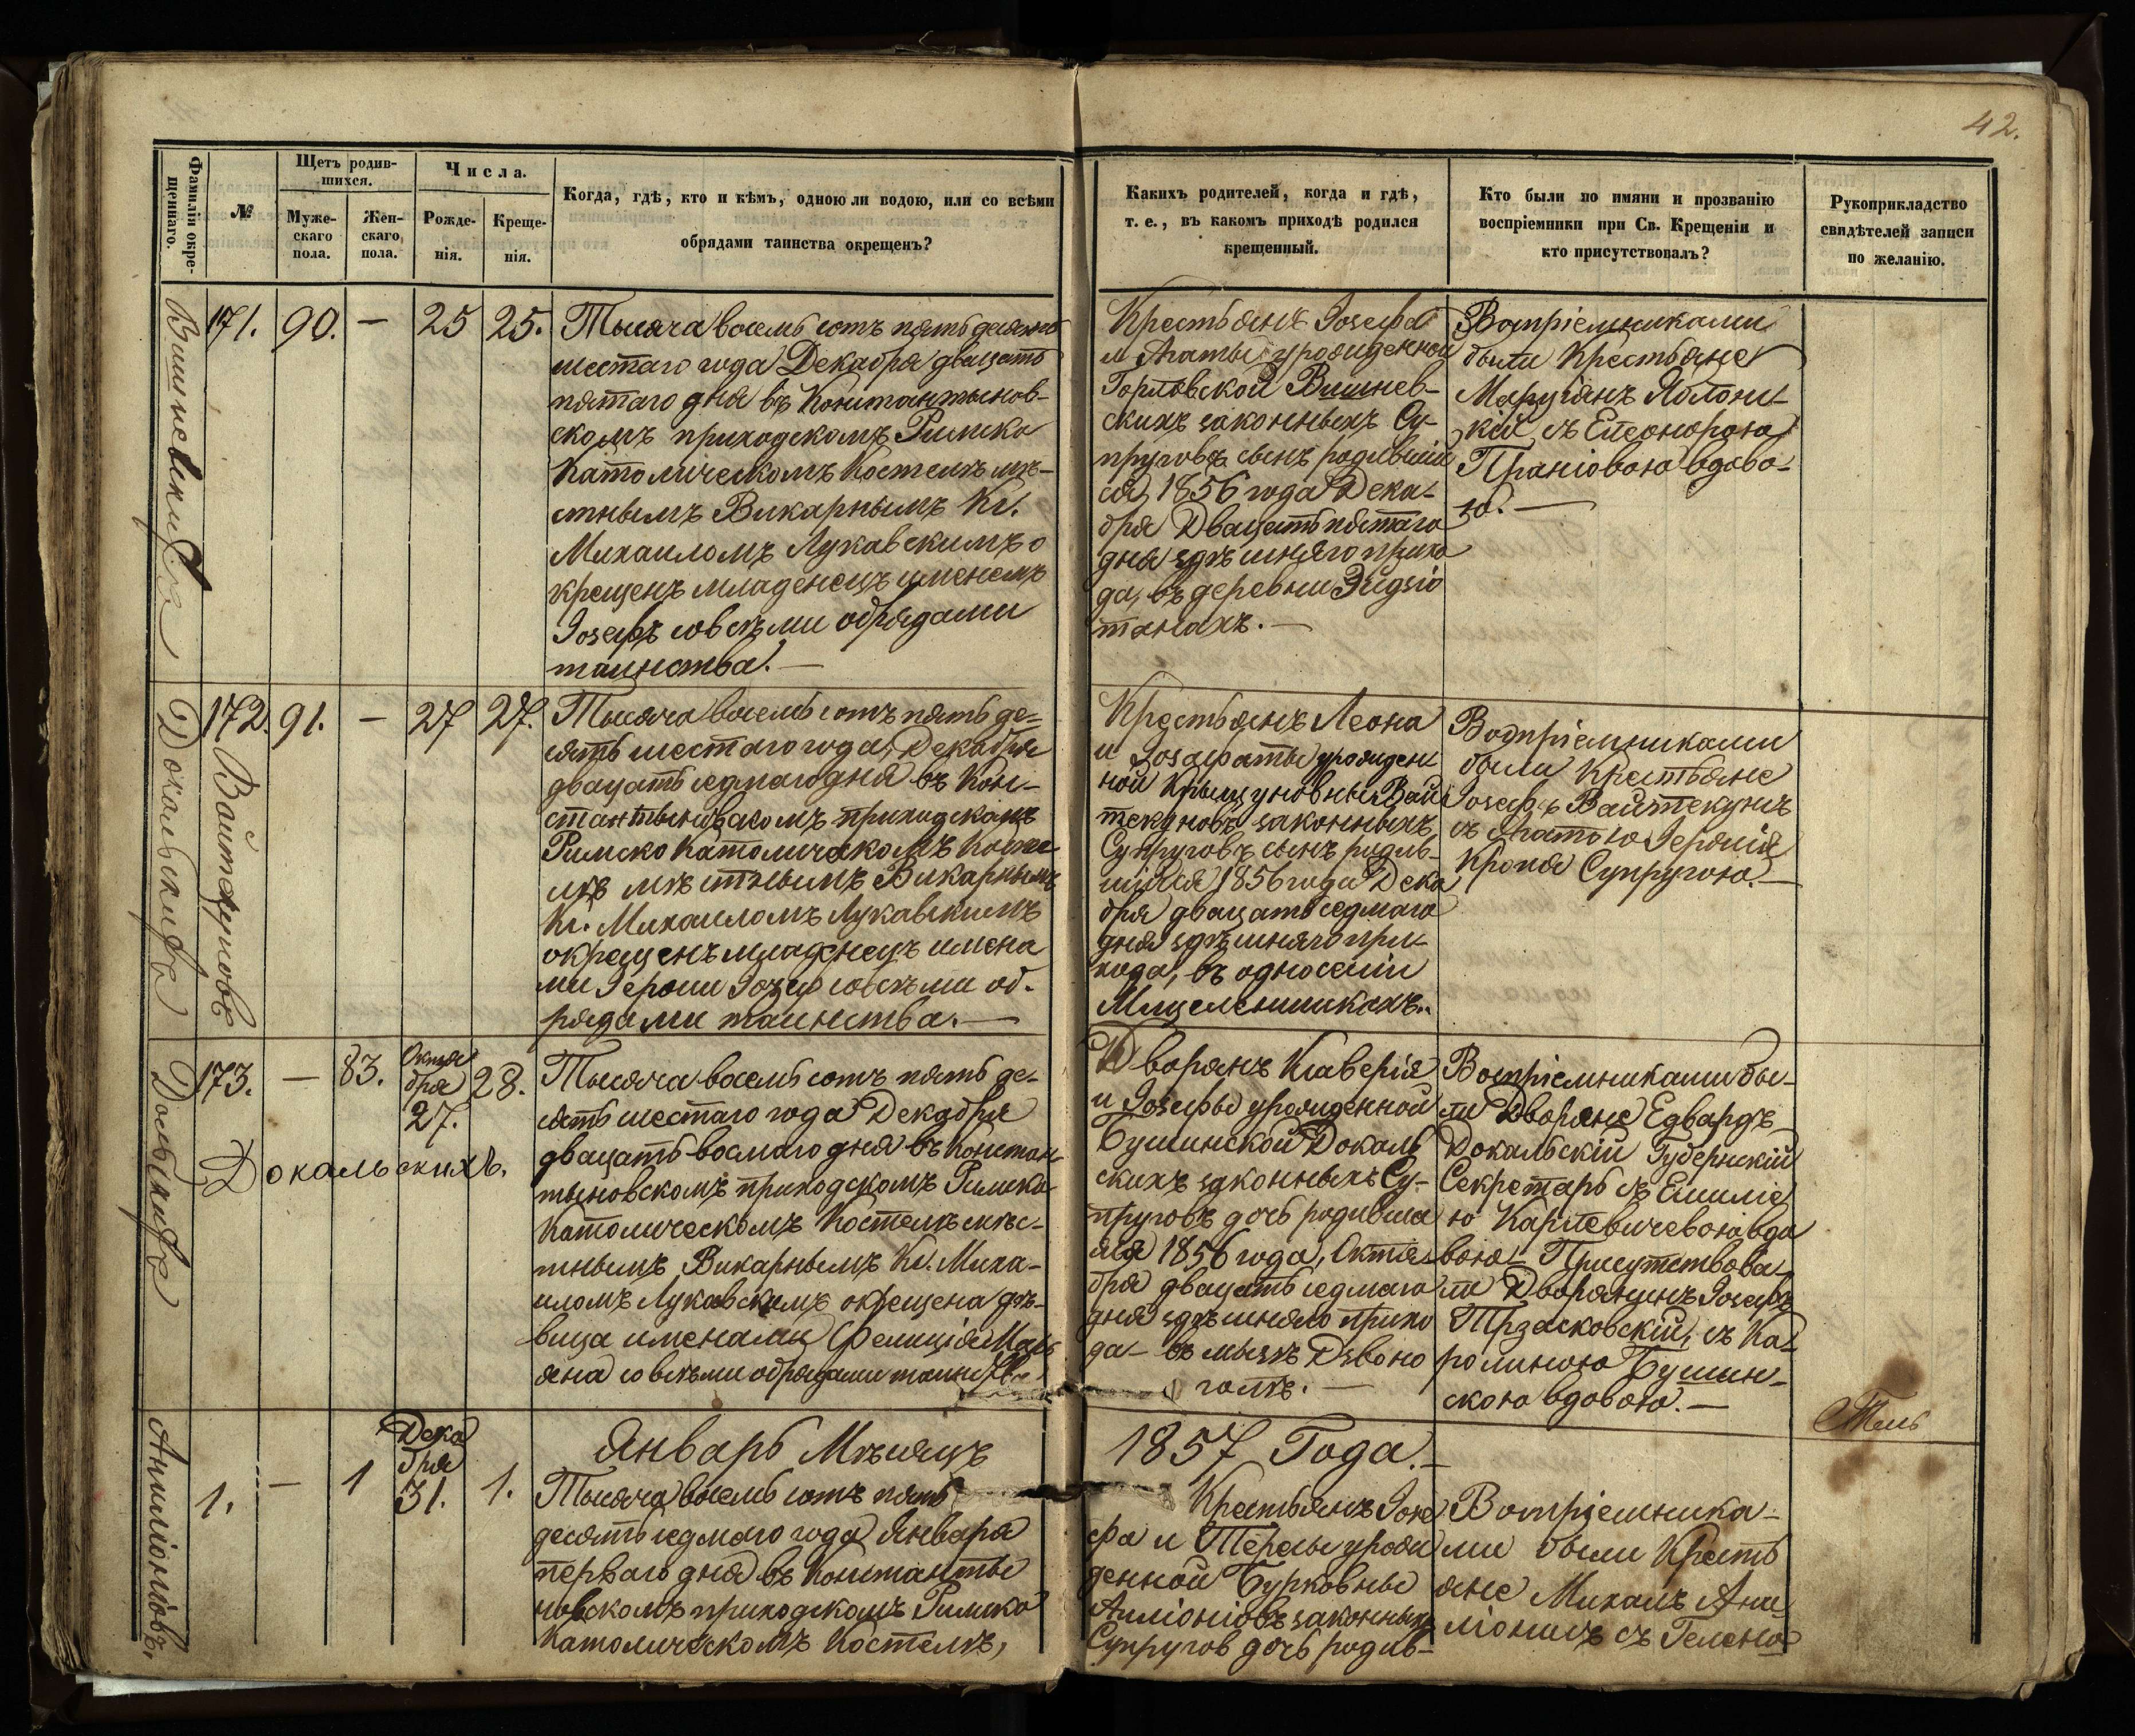 42.
Фамиліи окре-
щеннаго.
№
Щетъ родив-
шихся.
Муже-
скаго
пола.
Жен-
скаго
пола.
Числа.
Рожде-
нія.
Креще-
нія.
Когда, гдѣ, кто и кѣмъ, одною ли водою, или со всѣми
обрядами таинства окрещенъ?
Какихъ родителей, когда и гдѣ,
т. е., въ какомъ приходѣ родился
крещенный.
Кто были по имяни и прозванію
воспріемники при Св. Крещеніи и
кто присутствовалъ?
Рукоприкладство
свидѣтелей записи
по желанію.
Вишневскихъ
171. 90. — 25 25.
Тысяча восемь сотъ пять десятъ
шестаго года Декабря двацать
пятаго дня въ Константынов-
скомъ приходскомъ Римско
Католическомъ Костелѣ мѣ-
стнымъ Викарнымъ Кс.
Михаиломъ Лукавскимъ о
крещенъ младенецъ именемъ
Іозефъ со всѣми обрядами
таинства. —
Крестьянъ Іозефа
и Агаты урожденной
Горловской Вишнев-
скихъ законныхъ Су-
пруговъ сынъ родивший
ся 1856 года Дека-
бря Двацать пятаго
дня здѣшняго прихо
да, въ деревни
танахъ. —
Воспріемниками
были Крестьяне
Марціянъ Яблонс-
кій съ Елеонорою
Праніовою вдово-
ю. —
172. 91. — 27 27.
Войтекуновъ
Тысяча восемь сотъ пять де-
сять шестаго года, Декабря
двацать седмаго дня въ Кон-
стантыновскомъ приходскомъ
Римско Католическомъ Косте
лѣ мѣстнымъ Викарнымъ
Кс. Михаиломъ Лукавскимъ
окрещенъ младенецъ имена
ми Героним Іозеф со всѣми об-
рядами таинства. —
Крестьянъ Леона
и Іозефаты урожден
ной Вай
текуновъ законныхъ
Супруговъ сынъ родив-
шійся 1856 года Дека
бря двацать седмаго
дня здѣшняго при-
хода, въ односеліи
Воспріемниками
были Крестьяне
Іозефъ Вайтекунъ
съ Агатою
Супругою. —
Докальскихъ
173. — 83. Октя
бря
27.
28.
Докальскихъ.
Тысяча восемь сотъ пять де-
сять шестаго года Декабря
двацать восмаго дня въ Констан
тыновскомъ приходскомъ Римско
Католическомъ Костелѣ мѣс-
тнымъ Викарнымъ Кс. Миха-
иломъ Лукавскимъ окрещена дѣ-
вица именами Фелиція Марь
яна со всѣми обрядами таинства
Дворянъ Ксаверія
и Іозефы урожденной
Бушинской Докаль
скихъ законныхъ Су-
пруговъ дочь родивша
яся 1856 года, Октя-
бря двацать седмаго
дня здѣшняго прихо
да — въ мызѣ Дзвоно
голѣ. —
Воспріемниками бы-
ли Дворяне Едвардъ
Докальскій Губернскій
Секретарь съ Емиліе
ю Карпевичевою вдо
вою — Присутствова-
ли Дворянинъ Іозефъ
Трзасковскій, съ Ка-
ролиною Бушин-
скою вдовою. —
Январь Мѣсяцъ
1857 Года. —
Анилиониовъ.
1. — 1 Дека
бря
31.
1.
Тысяча восемь сотъ пять
десять седмаго года Января
перваго дня въ Константы
новскомъ приходскомъ Римско
Католическомъ Костелѣ,
Крестьянъ Іозе
фа и Терезы урож
денной Бурковны
законныхъ
Супругов дочь родив-
Воспріемника-
ми были Кресть
яне Михаилъ Ани-
ліонисъ съ Гелено